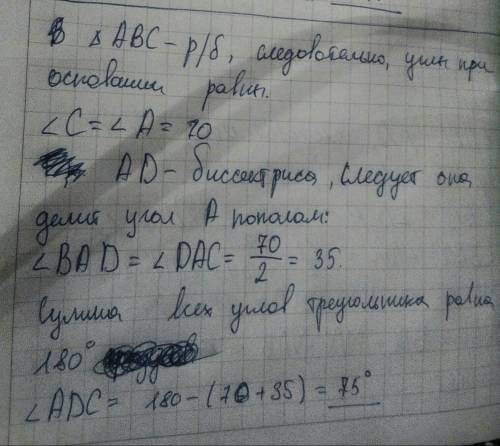 В △ABC – р/б, следовательно, углы при
основании равны.
∠C = ∠A = 70
AD – биссектриса, следует она
делит угол A пополам:
∠BAD = ∠DAC = 70/2 = 35.
Сумма всех углов треугольника равна
180°
∠ADC = 180 – (70 + 35) = 75°